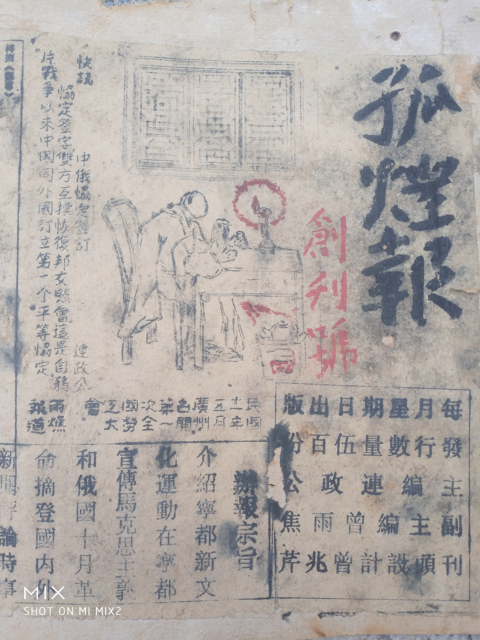 孤燈報
創刊號
每月星期日出版
發行數量伍百份
主編連政公
副主編曾雨焦
刊頭設計曾兆芹
民國
十一年
五月
廣州
召開
第一
次全
國勞
工大
會
雨焦
報道
快訊
中俄協定簽訂 連政公
協定簽字雙方互換恢復邦交照會這是自鴉
片戰爭以來中國同外國訂立第一个平等協定
辦報宗旨
介紹寧都新文
化運動在寧都
宣傳馬克思主義
和俄國十月革
命摘登國內外
新聞評論時事
MIX
SHOT ON MI MIX2